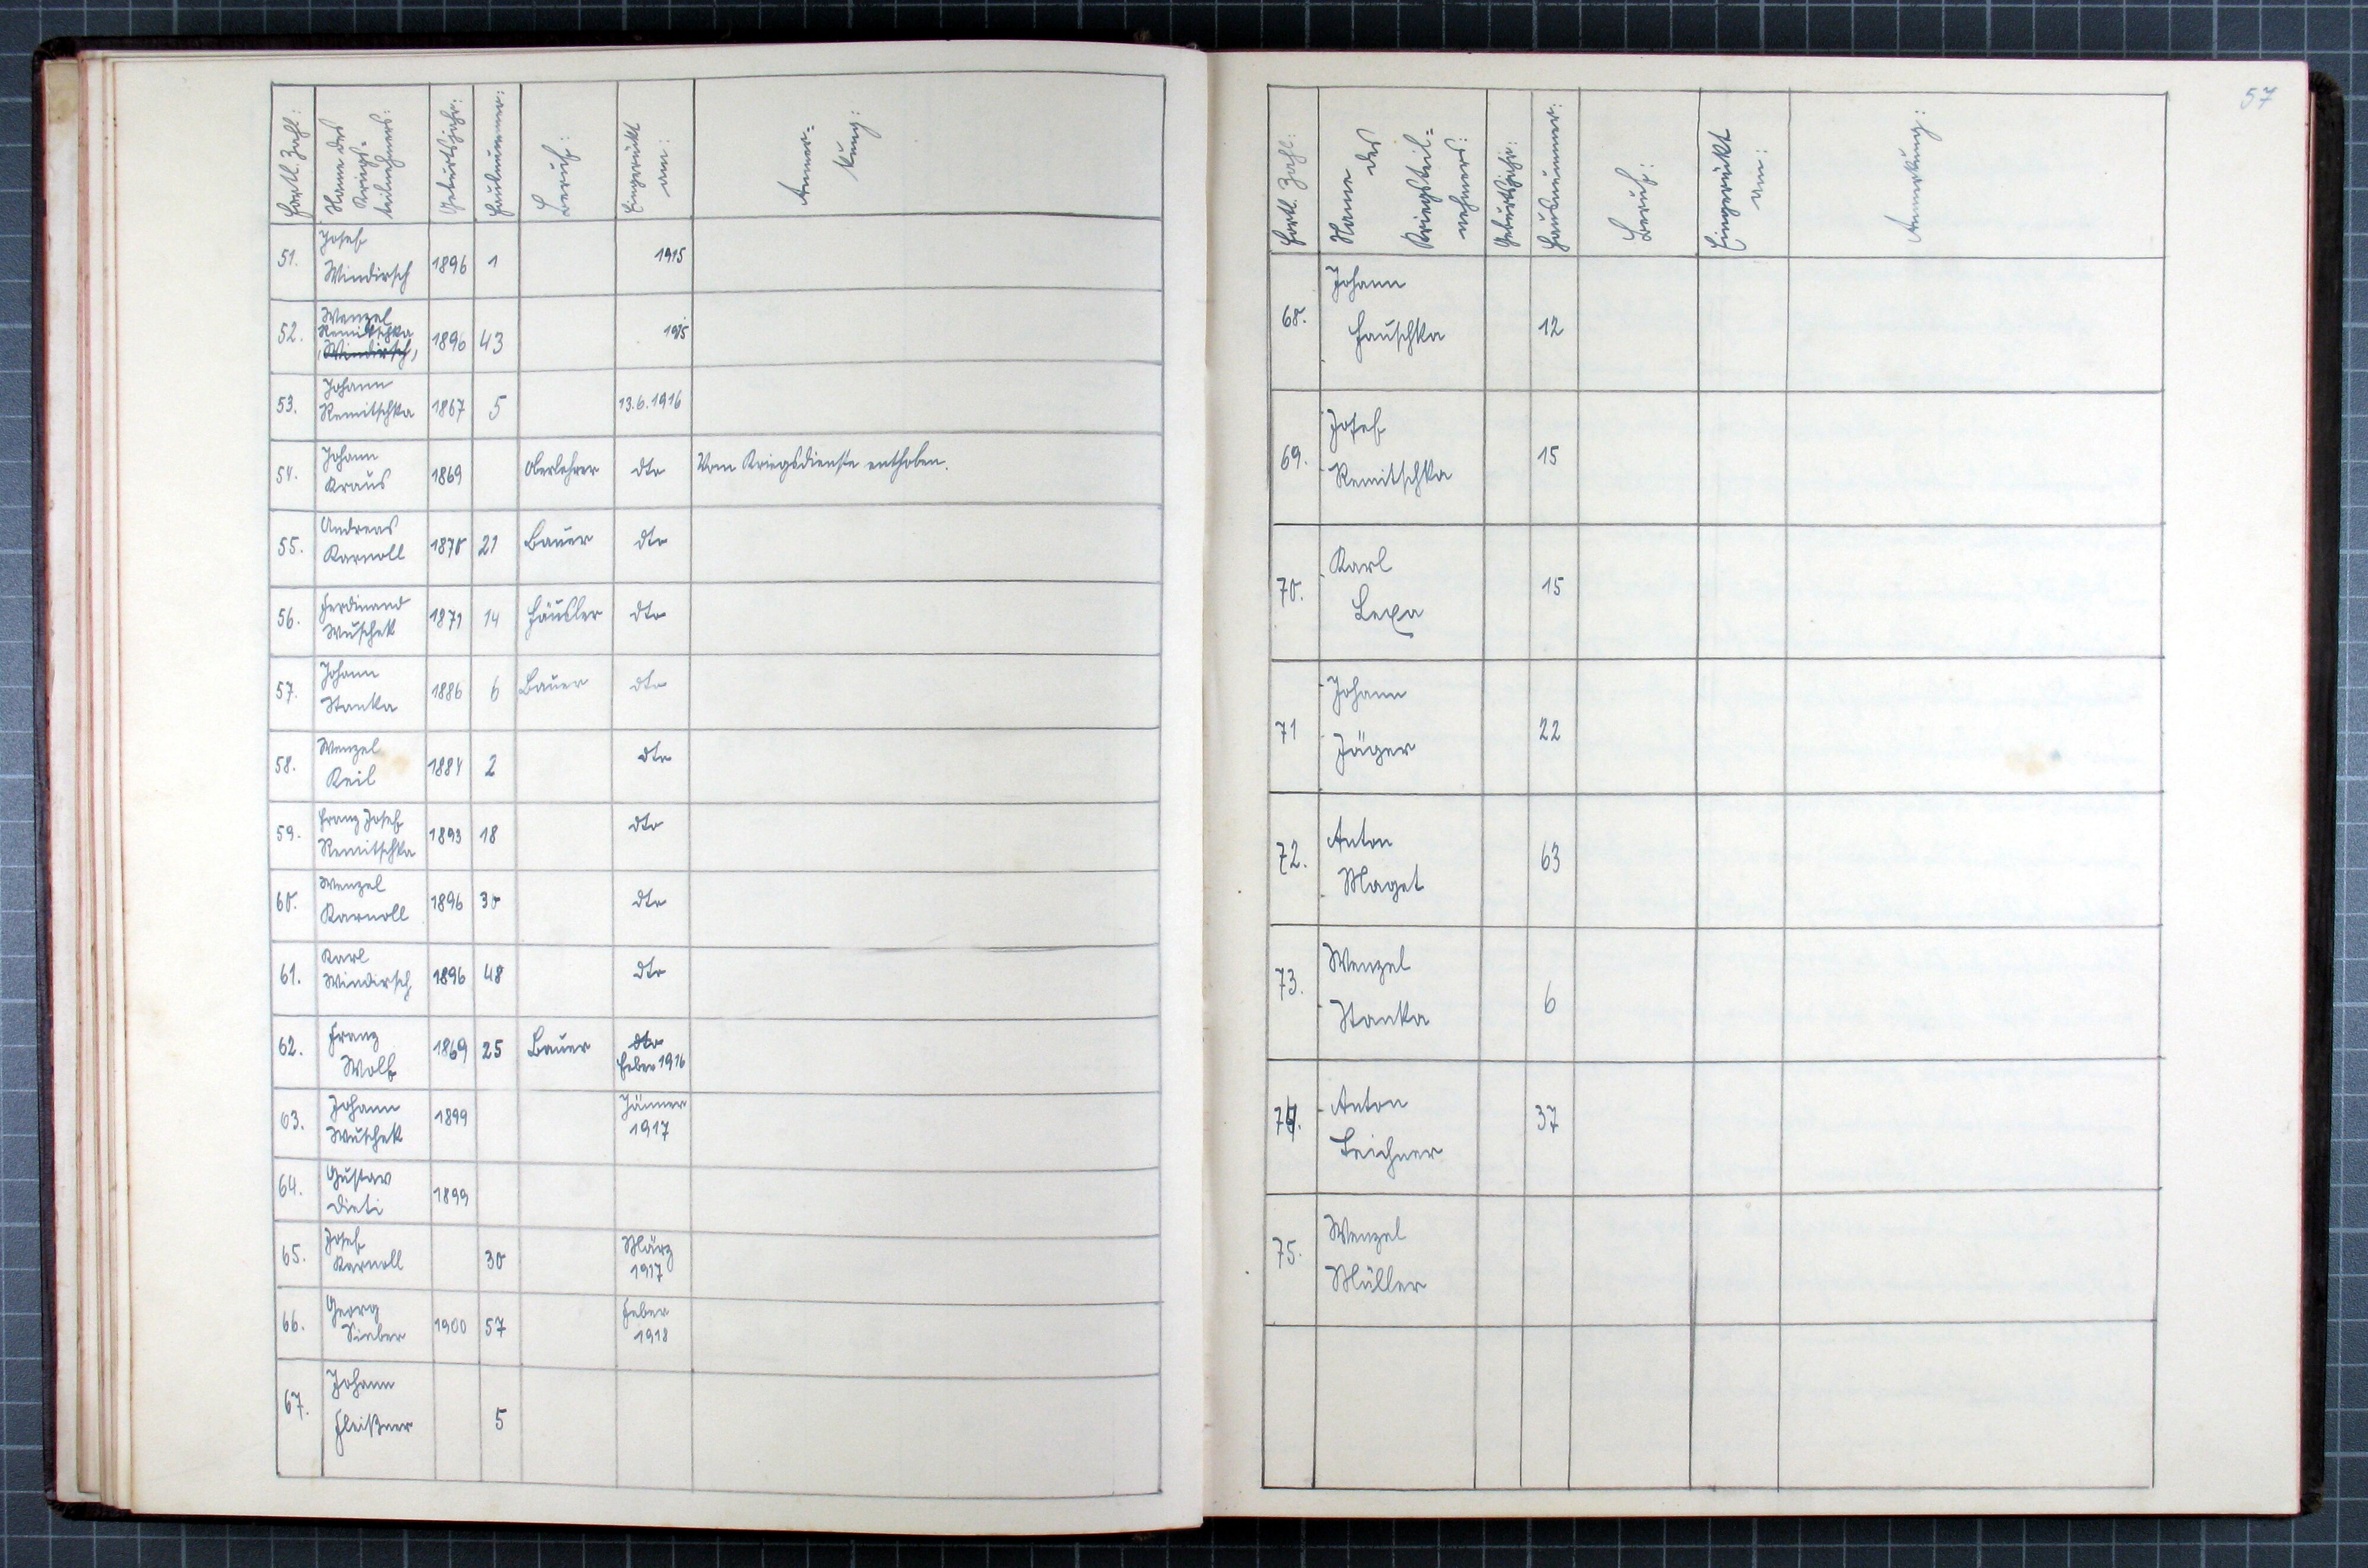 57
Fortl. Zahl: Name des Kriegs=teilnehmers: Geburtsjahr: Hausnummer: Beruf: Eingerückt am: Anmer=kung:
51. Josef Windirsch 1896 1 1915
52. Wenzel Remitschka (Windirsch) 1896 43 1915
53. Johann Remitschka 1867 5 13.6.1916
54. Johann Kraus 1869 Oberlehrer dto Vom Kriegsdienste enthoben.
55. Andreas Karnoll 1870 21 Bauer dto
56. Ferdinand Wuschek 1871 14 Häusler dto
57. Johann Stanka 1886 6 Bauer dto
58. Wenzel Keil 1884 2 dto
59. Franz Josef Remitschka 1893 18 dto
60. Wenzel Karnoll 1896 30 dto
61. Karl Windirsch 1896 48 dto
62. Franz Wolf 1869 25 Bauer dto Feber 1916
63. Johann Wuschek 1899 Jänner 1917
64. Gustav Dieti 1899
65. Josef Karnoll 30 März 1917
66. Georg Sieber 1900 57 Feber 1918
67. Johann Fleißner 5
Fortl. Zahl: Name des Kriegsteil=nehmers: Geburtsjahr: Hausnummer: Beruf: Eingerückt am: Anmerkung:
68. Johann Hauschka 12
69. Josef Remitschka 15
70. Karl Lexa 15
71 Johann Jäger 22
72. Anton Maget 63
73. Wenzel Stanka 6
74. Anton Leichner 37
75. Wenzel Müller